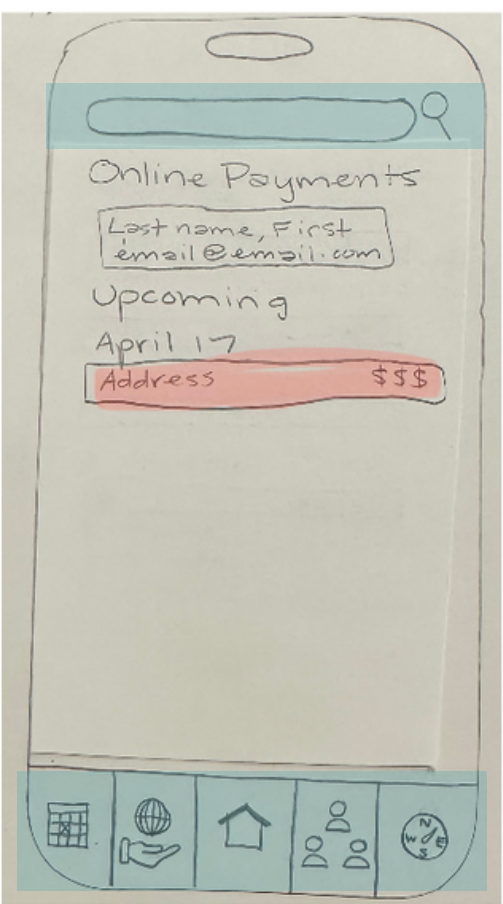 Online Payments
Last name, First
email@email.com
Upcoming
April 17
Address $$$
N
W E
S